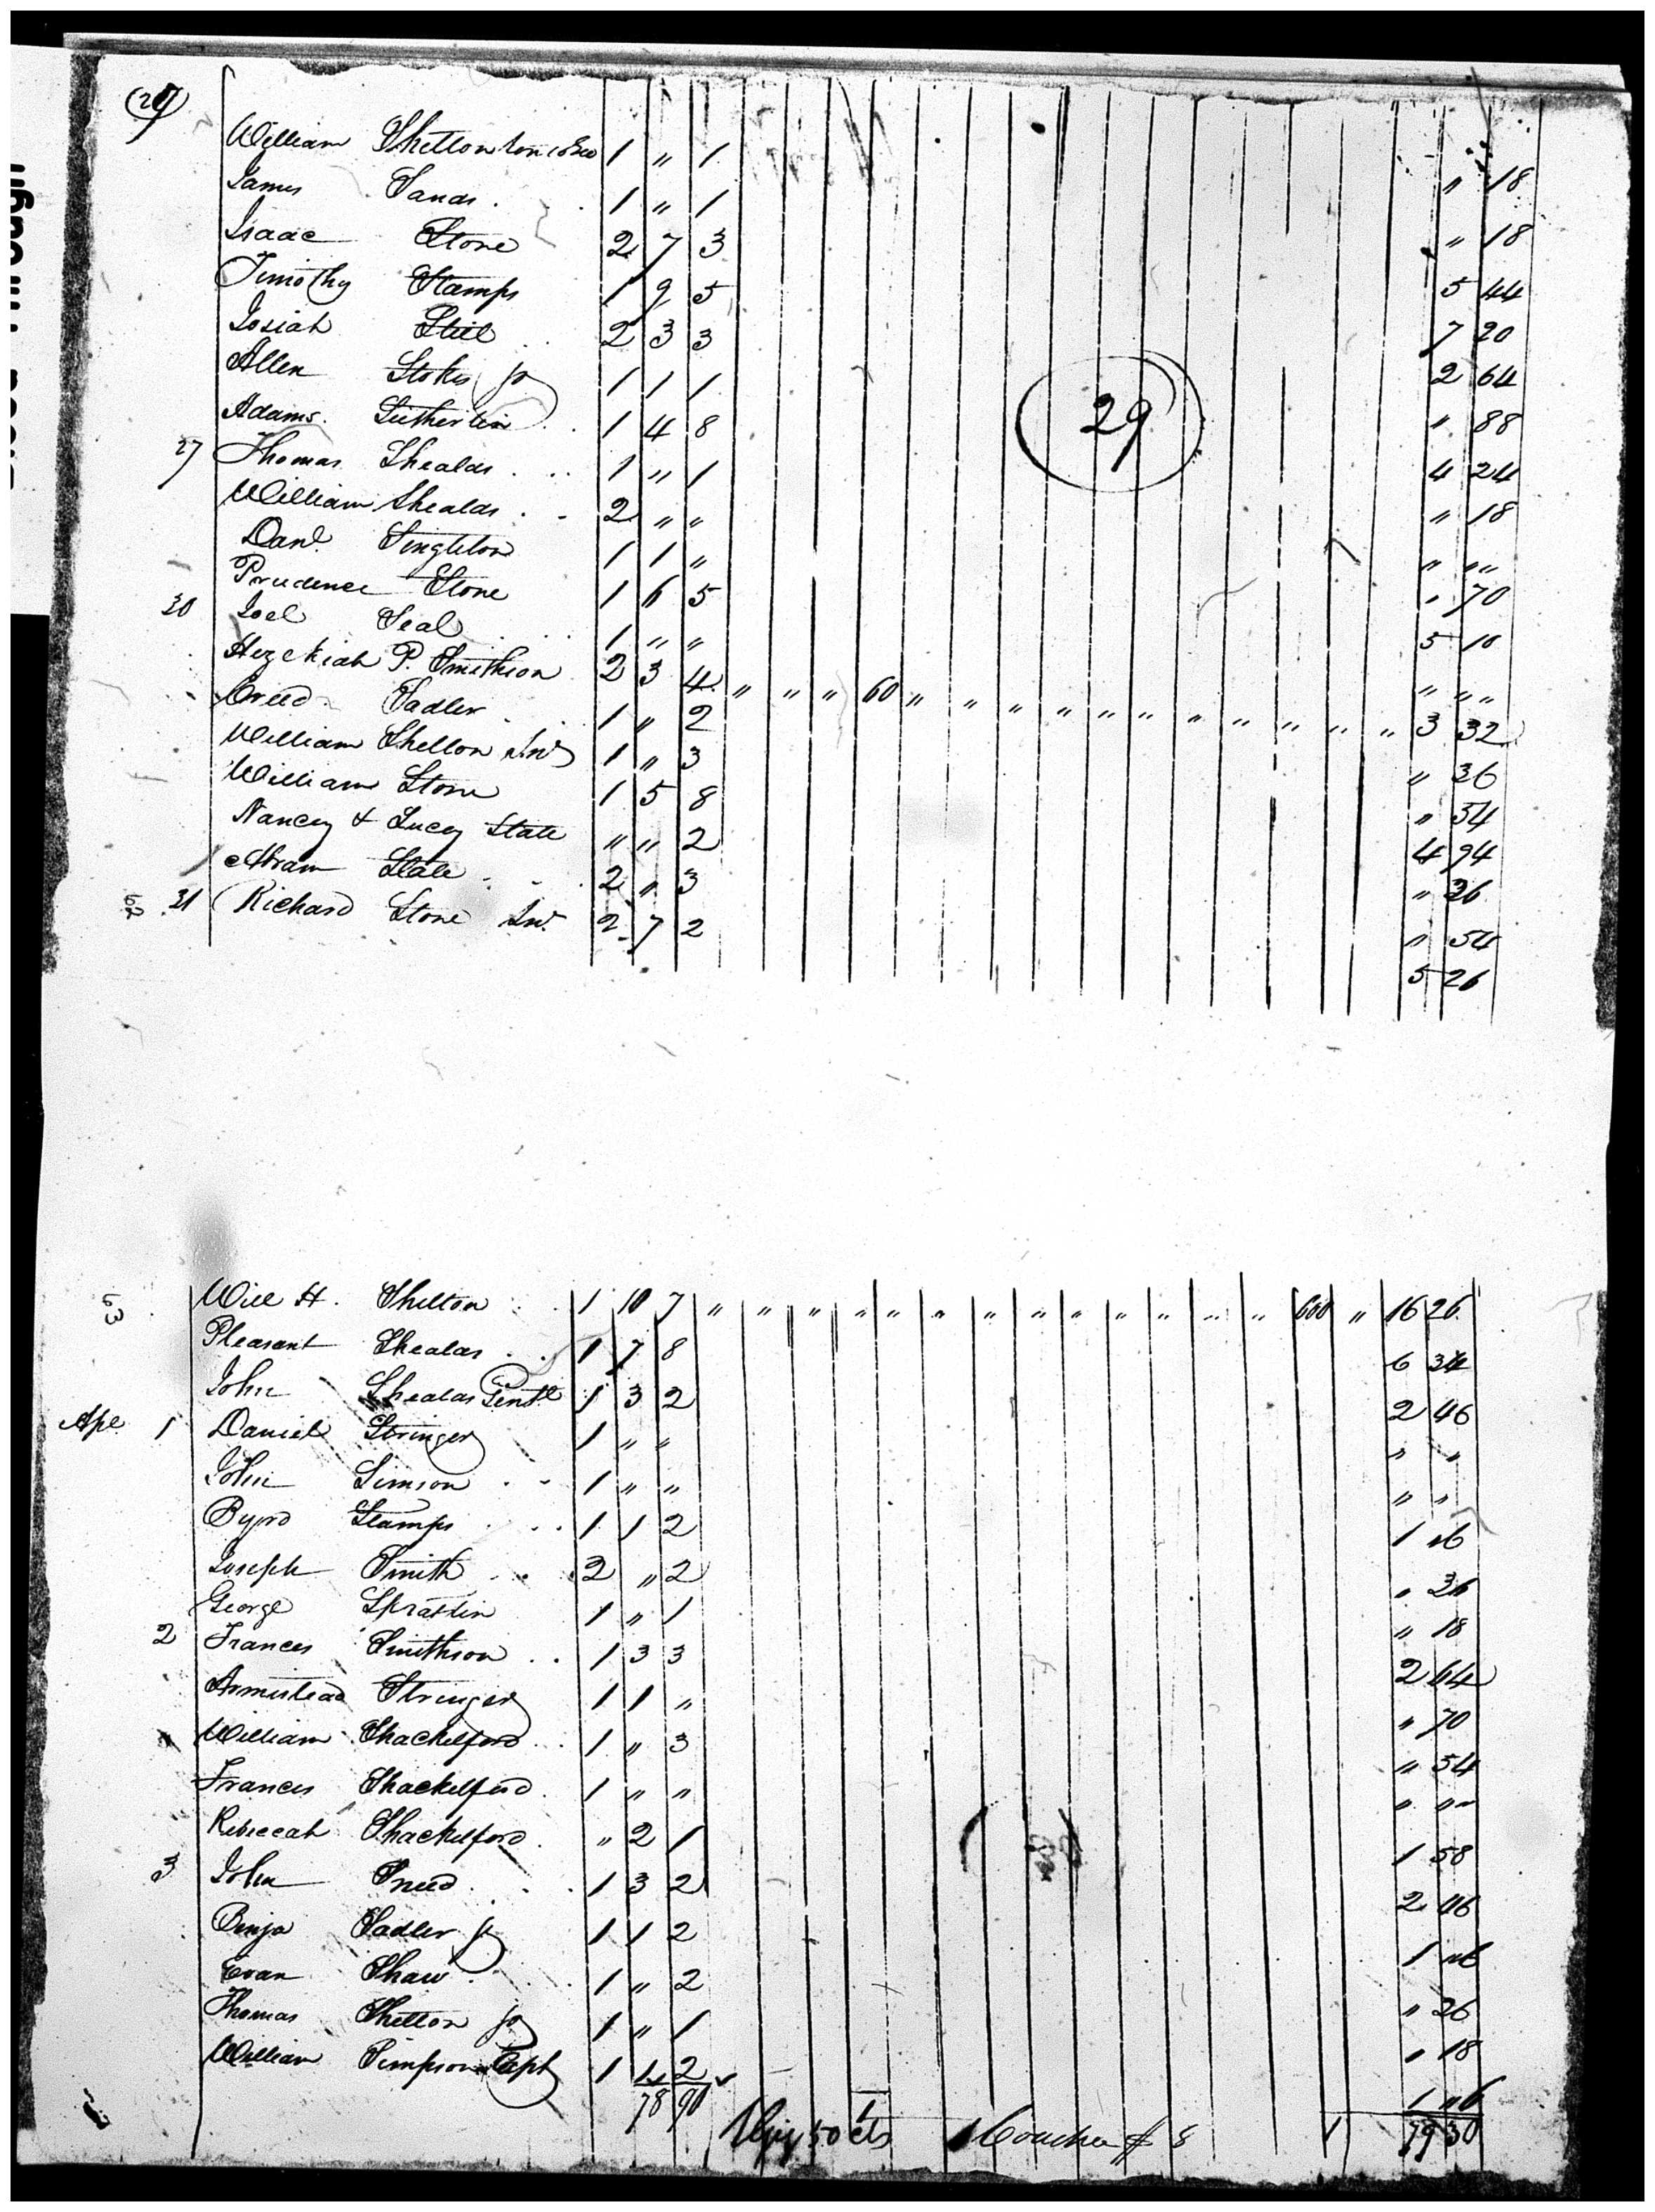 (29)
William Shelton 1 " 1 " 18
James Sands 1 " 1 " 18
Isaac Stone 2 7 3 5 44
Timothy Stamps 1 9 5 7 20
Josiah Still 2 3 3 2 64
Allen Stokes jr 1 1 1 " 88
Adams Sutherlin 1 4 8 4 24
29
27 Thomas Shealds 1 " 1 " 18
William Shealds 2 " " " ""
Danl. Singleton 1 1 " " 70
Prudence Stone 1 6 5 5 10
30 Joel Seal 1 " " " ""
Hezekiah P. Smithson 2 3 4 " " " 60 " " " " " " " " " " " 3 32
Creed Sadler 1 " 2 " 36
William Shelton Snr 1 " 3 " 54
William Stone 1 5 8 4 94
Nancy & Lucy Slate " " 2 " 36
Abram Slate 2 " 3 " 54
52 31 Richard Stone Snr. 2 7 2 5 26
53 Will H. Shelton 1 10 7 " " " " " " " " " " " " " 600 " 16 26
Pleasant Shealds 1 7 8 6 34
John Shealds Gentl 1 3 2 2 46
Apl 1 Daniel Stringer 1 " " " "
John Simson 1 " " " "
Byrd Stamps 1 1 2 1 "6
Joseph Smith 2 " 2 " 36
George Spratlin 1 " 1 " 18
2 Frances Smithson 1 3 3 2 64
Armistead Stringer 1 1 " " 70
William Shackelford 1 " 3 " 54
Frances Shackelford 1 " " " ""
Rebeccah Shackelford " 2 1 1 58
3 John Sneed 1 3 2 2 46
Benja Sadler jr 1 1 2 1 "6
Evan Shaw 1 " 2 " 36
Thomas Shelton jr 1 " 1 " 18
William Simpson Capt 1 1 2 1 "6
78 90 1 50 cts 1 $ 8 1 79 30